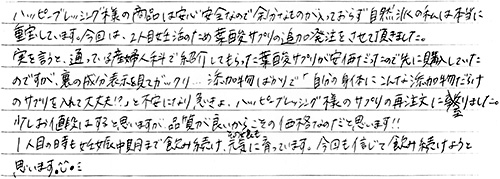 ハッピーブレッシング様の商品は安心安全なので余分なものが入っておらず自然派の私は本当に
重宝しています。今回は、2人目妊活のため葉酸サプリの追加発注をさせて頂きました。
実を言うと、通っている産婦人科で紹介してもらった葉酸サプリが安価だったので先に購入していた
のですが、裏の成分表示を見てガックリ…添加物ばかりで「自分の身体にこんな添加物だらけ
のサプリを入れて大丈夫!?」と不安になり、急きょ、ハッピーブレッシング様のサプリの再注文に至りました。
少しお値段はすると思いますが、品質が良いからこその価格なのだと思います!!
1人目の時も妊娠中期まで飲み続け、子どもも元気に育っています。今回も信じて飲み続けようと
思います。